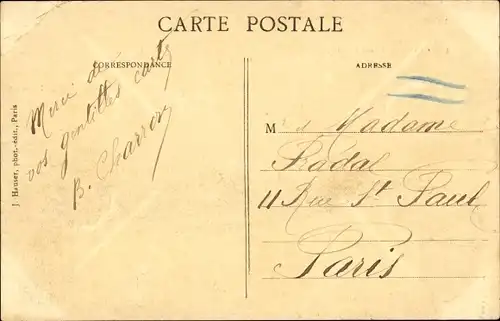 CARTE POSTALE
CORRESPONDANCE
Merci de
vos gentilles cartes
B. Charron
J. Hauser, phot.-édit., Paris
ADRESSE
M et Madame
Radal
11 Rue St Paul
Paris